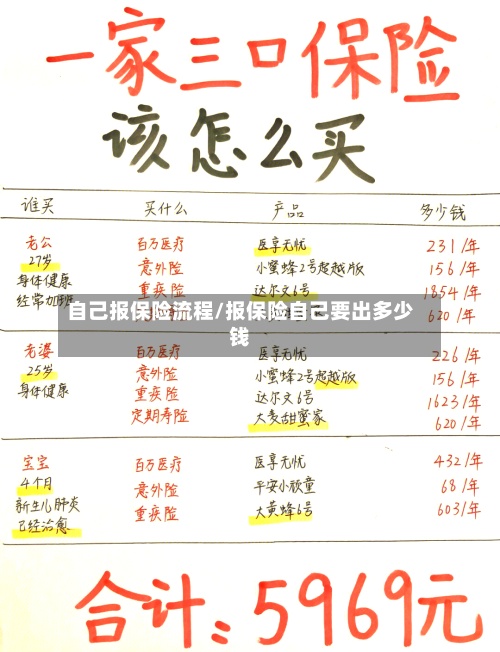 一家三口保险
该怎么买
谁买 买什么 产品 多少钱
老公 百万医疗 医享无忧 231/年
27岁 意外险 小蜜蜂2号超越版 156/年
身体健康 重疾险 达尔文6号 1854/年
经常加班 620/年
自己报保险流程/报保险自己要出多少
钱
老婆 百万医疗 医享无忧 226/年
25岁 意外险 小蜜蜂2号超越版 156/年
身体健康 重疾险 达尔文6号 1623/年
定期寿险 大麦甜蜜家 620/年
宝宝 百万医疗 医享无忧 432/年
4个月 意外险 平安小顽童 68/年
新生儿肺炎 重疾险 大黄蜂6号 603/年
已经治愈
合计:5969元